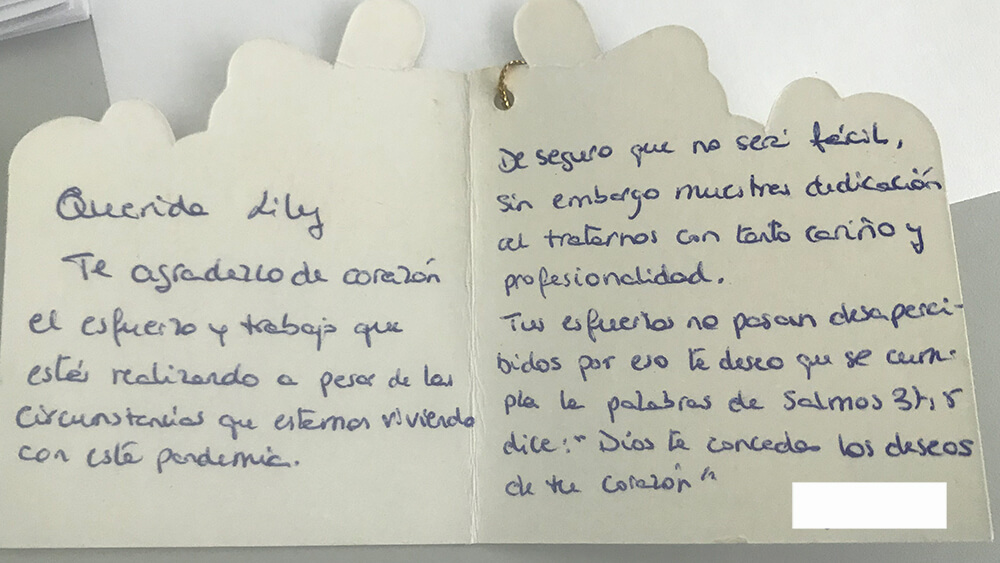 Querida Lily
Te agradezco de corazón
el esfuerzo y trabajo que
estás realizando a pesar de las
circunstancias que estamos viviendo
con esta pandemia.
De seguro que no será fácil,
sin embargo muestras dedicación
al tratarnos con tanto cariño y
profesionalidad.
Tus esfuerzos no pasan desaperci-
bidos por eso te deseo que se cum-
pla la palabras de Salmos
dice: "Dios te conceda los deseos
de tu corazón"